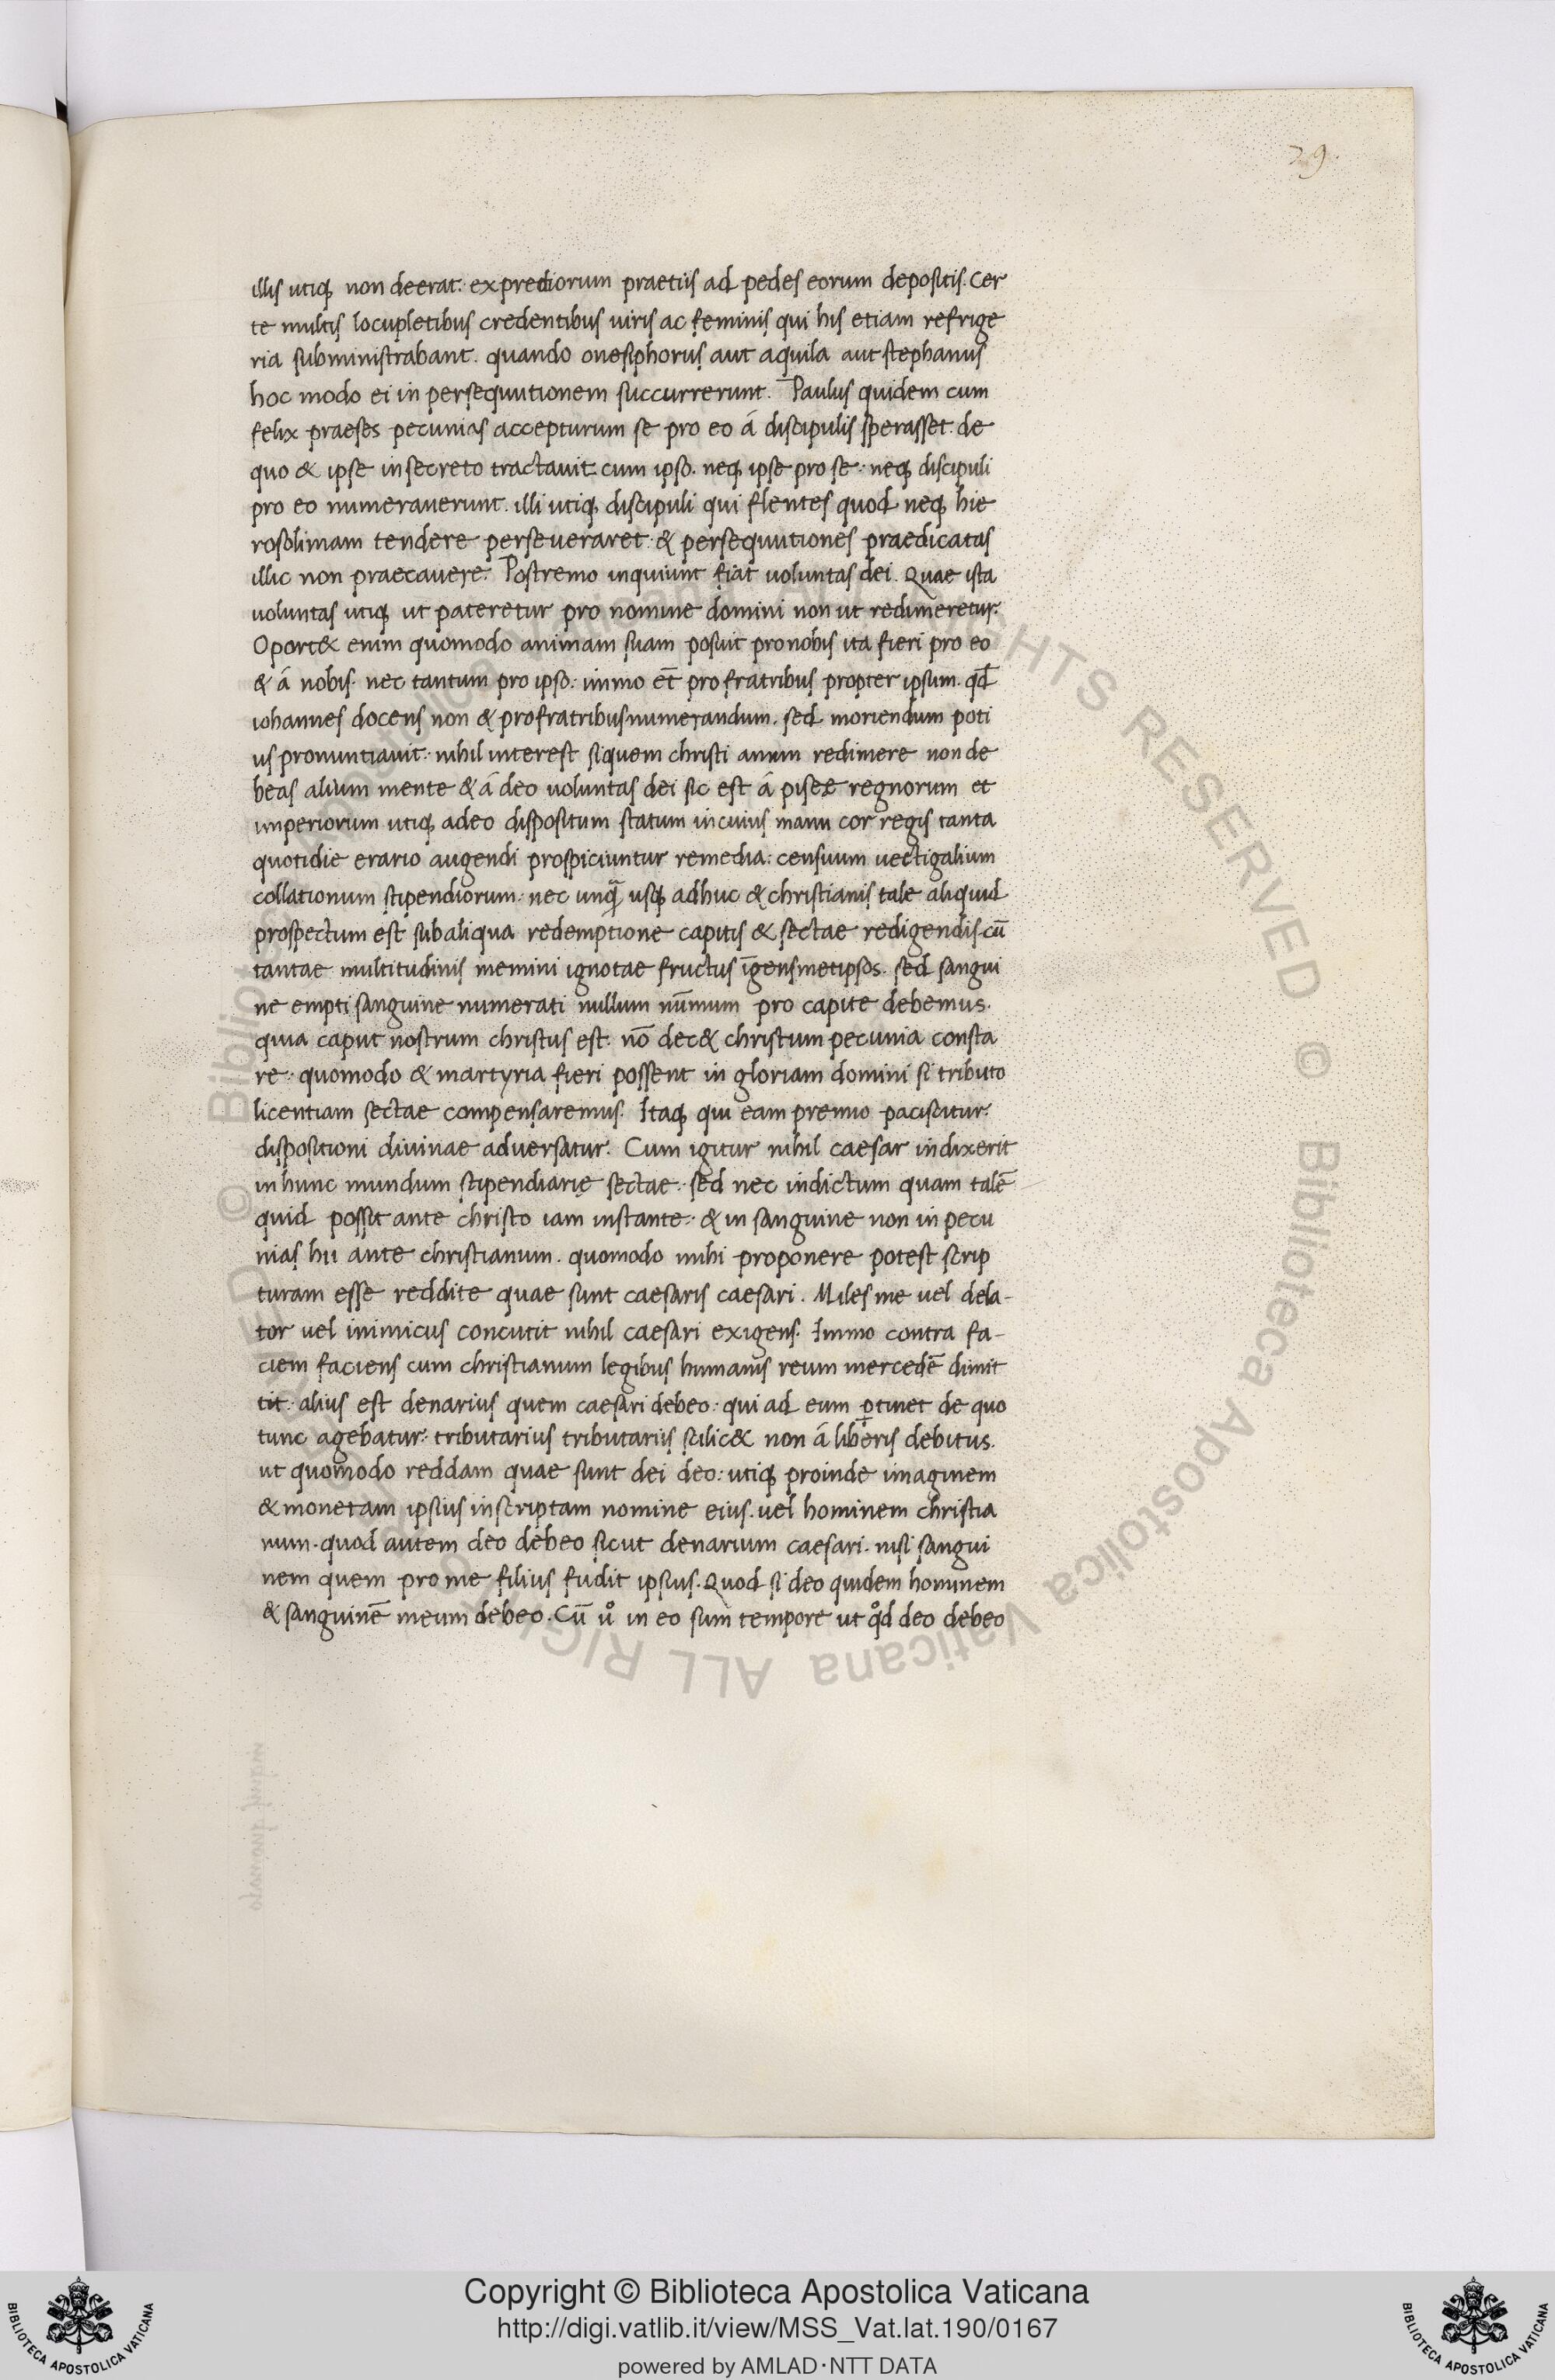 79.
illis utiq; non deerat: ex prediorum praetiis ad pedes eorum depositis. Cer
te multis locupletibus credentibus uiris ac feminis qui his etiam refrige
ria subministrabant. quando onesiphorus aut aquila aut stephanus
hoc modo ei in persequutionem succurrerunt. Paulus quidem cum
felix praeses pecunias accepturum se pro eo á discipulis sperasset. de
quo & ipse in secreto tractauit cum ipso. neq; ipse pro se: neq; discipuli
pro eo numerauerunt. illi utiq; discipuli qui flentes quod neq; hie
rosolimam tendere perseueraret: & persequutiones praedicatas
illic non praecauere: Postremo inquiunt fiat uoluntas dei. Quae ista
uoluntas utiq; ut pateretur pro nomine domini non ut redimeretur:
Oport& enim quomodo animam suam posuit pro nobis ita fieri pro eo
& á nobis. nec tantum pro ipso: immo et̄ pro fratribus propter ipsum. qd̄
iohannes docens non & pro fratribus numerandum. sed moriendum poti
us pronuntiauit: nihil interest siquem christi anum redimere non de
beas alium mente & á deo uoluntas dei sic est á pisee regnorum et
imperiorum utiq; adeo dispositum statum in cuius manu cor regis tanta
quotidie erario augendi prospiciuntur remedia: censuum uectigalium
collationum stipendiorum: nec unq̄ usq; adhuc & christianis tale aliquid
prospectum est sub aliqua redemptione capitis & sectae redigendis cū
tantae multitudinis nemini ignotae fructus īgens metipsos. sed sangui
ne empti sanguine numerati nullum nūmum pro capite debemus.
quia caput nostrum christus est. nō dec& christum pecunia consta
re: quomodo & martyria fieri possent in gloriam domini si tributo
licentiam sectae compensaremus. Itaq; qui eam premio paciscitur:
dispositioni diuinae aduersatur. Cum igitur nihil caesar indixerit
in hunc mundum stipendiarię sectae: sed nec indictum quam talē
quid possit ante christo iam instante: & in sanguine non in pecu
nias hii ante christianum. quomodo mihi proponere potest scrip
turam esse reddite quae sunt caesaris caesari. Miles me uel dela-
tor uel inimicus concutit nihil caesari exigens. Immo contra fa-
ciem faciens cum christianum legibus humanis reum mercedē dimit
tit: alius est denarius quem caesari debeo: qui ad eum ꝑtinet de quo
tunc agebatur: tributarius tributariis scilic& non á liberis debitus.
ut quomodo reddam quae sunt dei deo: utiq; proinde imaginem
& monetam ipsius inscriptam nomine eius. uel hominem christia
num. quod autem deo debeo sicut denarium caesari. nisi sangui
nem quem pro me filius fudit ipsius. Quod si deo quidem hominem
& sanguinē meum debeo. Cū uͦ in eo sum tempore ut qͦd deo debeo
© Biblioteca Apostolica Vaticana ALL RIGHTS RESERVED © Biblioteca Apostolica Vaticana ALL RIGHTS RESERVED
Copyright © Biblioteca Apostolica Vaticana
http://digi.vatlib.it/view/MSS_Vat.lat.190/0167
powered by AMLAD·NTT DATA
BIBLIOTECA APOSTOLICA VATICANA
BIBLIOTECA APOSTOLICA VATICANA